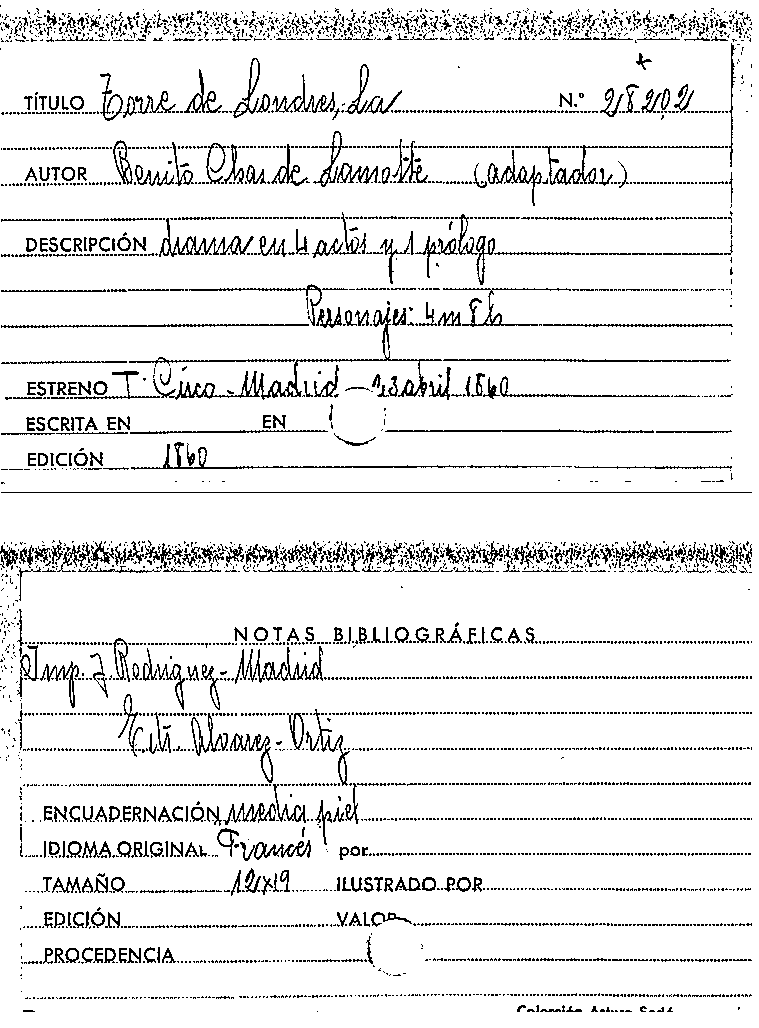 *
TÍTULO Torre de Londres, La N.º 28202
AUTOR Benito Chas de Lamotte (adaptador)
DESCRIPCIÓN drama en 4 actos y 1 prólogo
Personajes: 4 m 8 h
ESTRENO T. Circo - Madrid - 23 abril 1860
ESCRITA EN EN
EDICIÓN 1860
NOTAS BIBLIOGRÁFICAS
Imp. J. Rodriguez - Madrid
Edt. Alvarez - Ortiz
ENCUADERNACIÓN media piel
IDIOMA ORIGINAL Francés por
TAMAÑO 12x19 ILUSTRADO POR
EDICIÓN VALOR
PROCEDENCIA
Colección Arturo Sedó